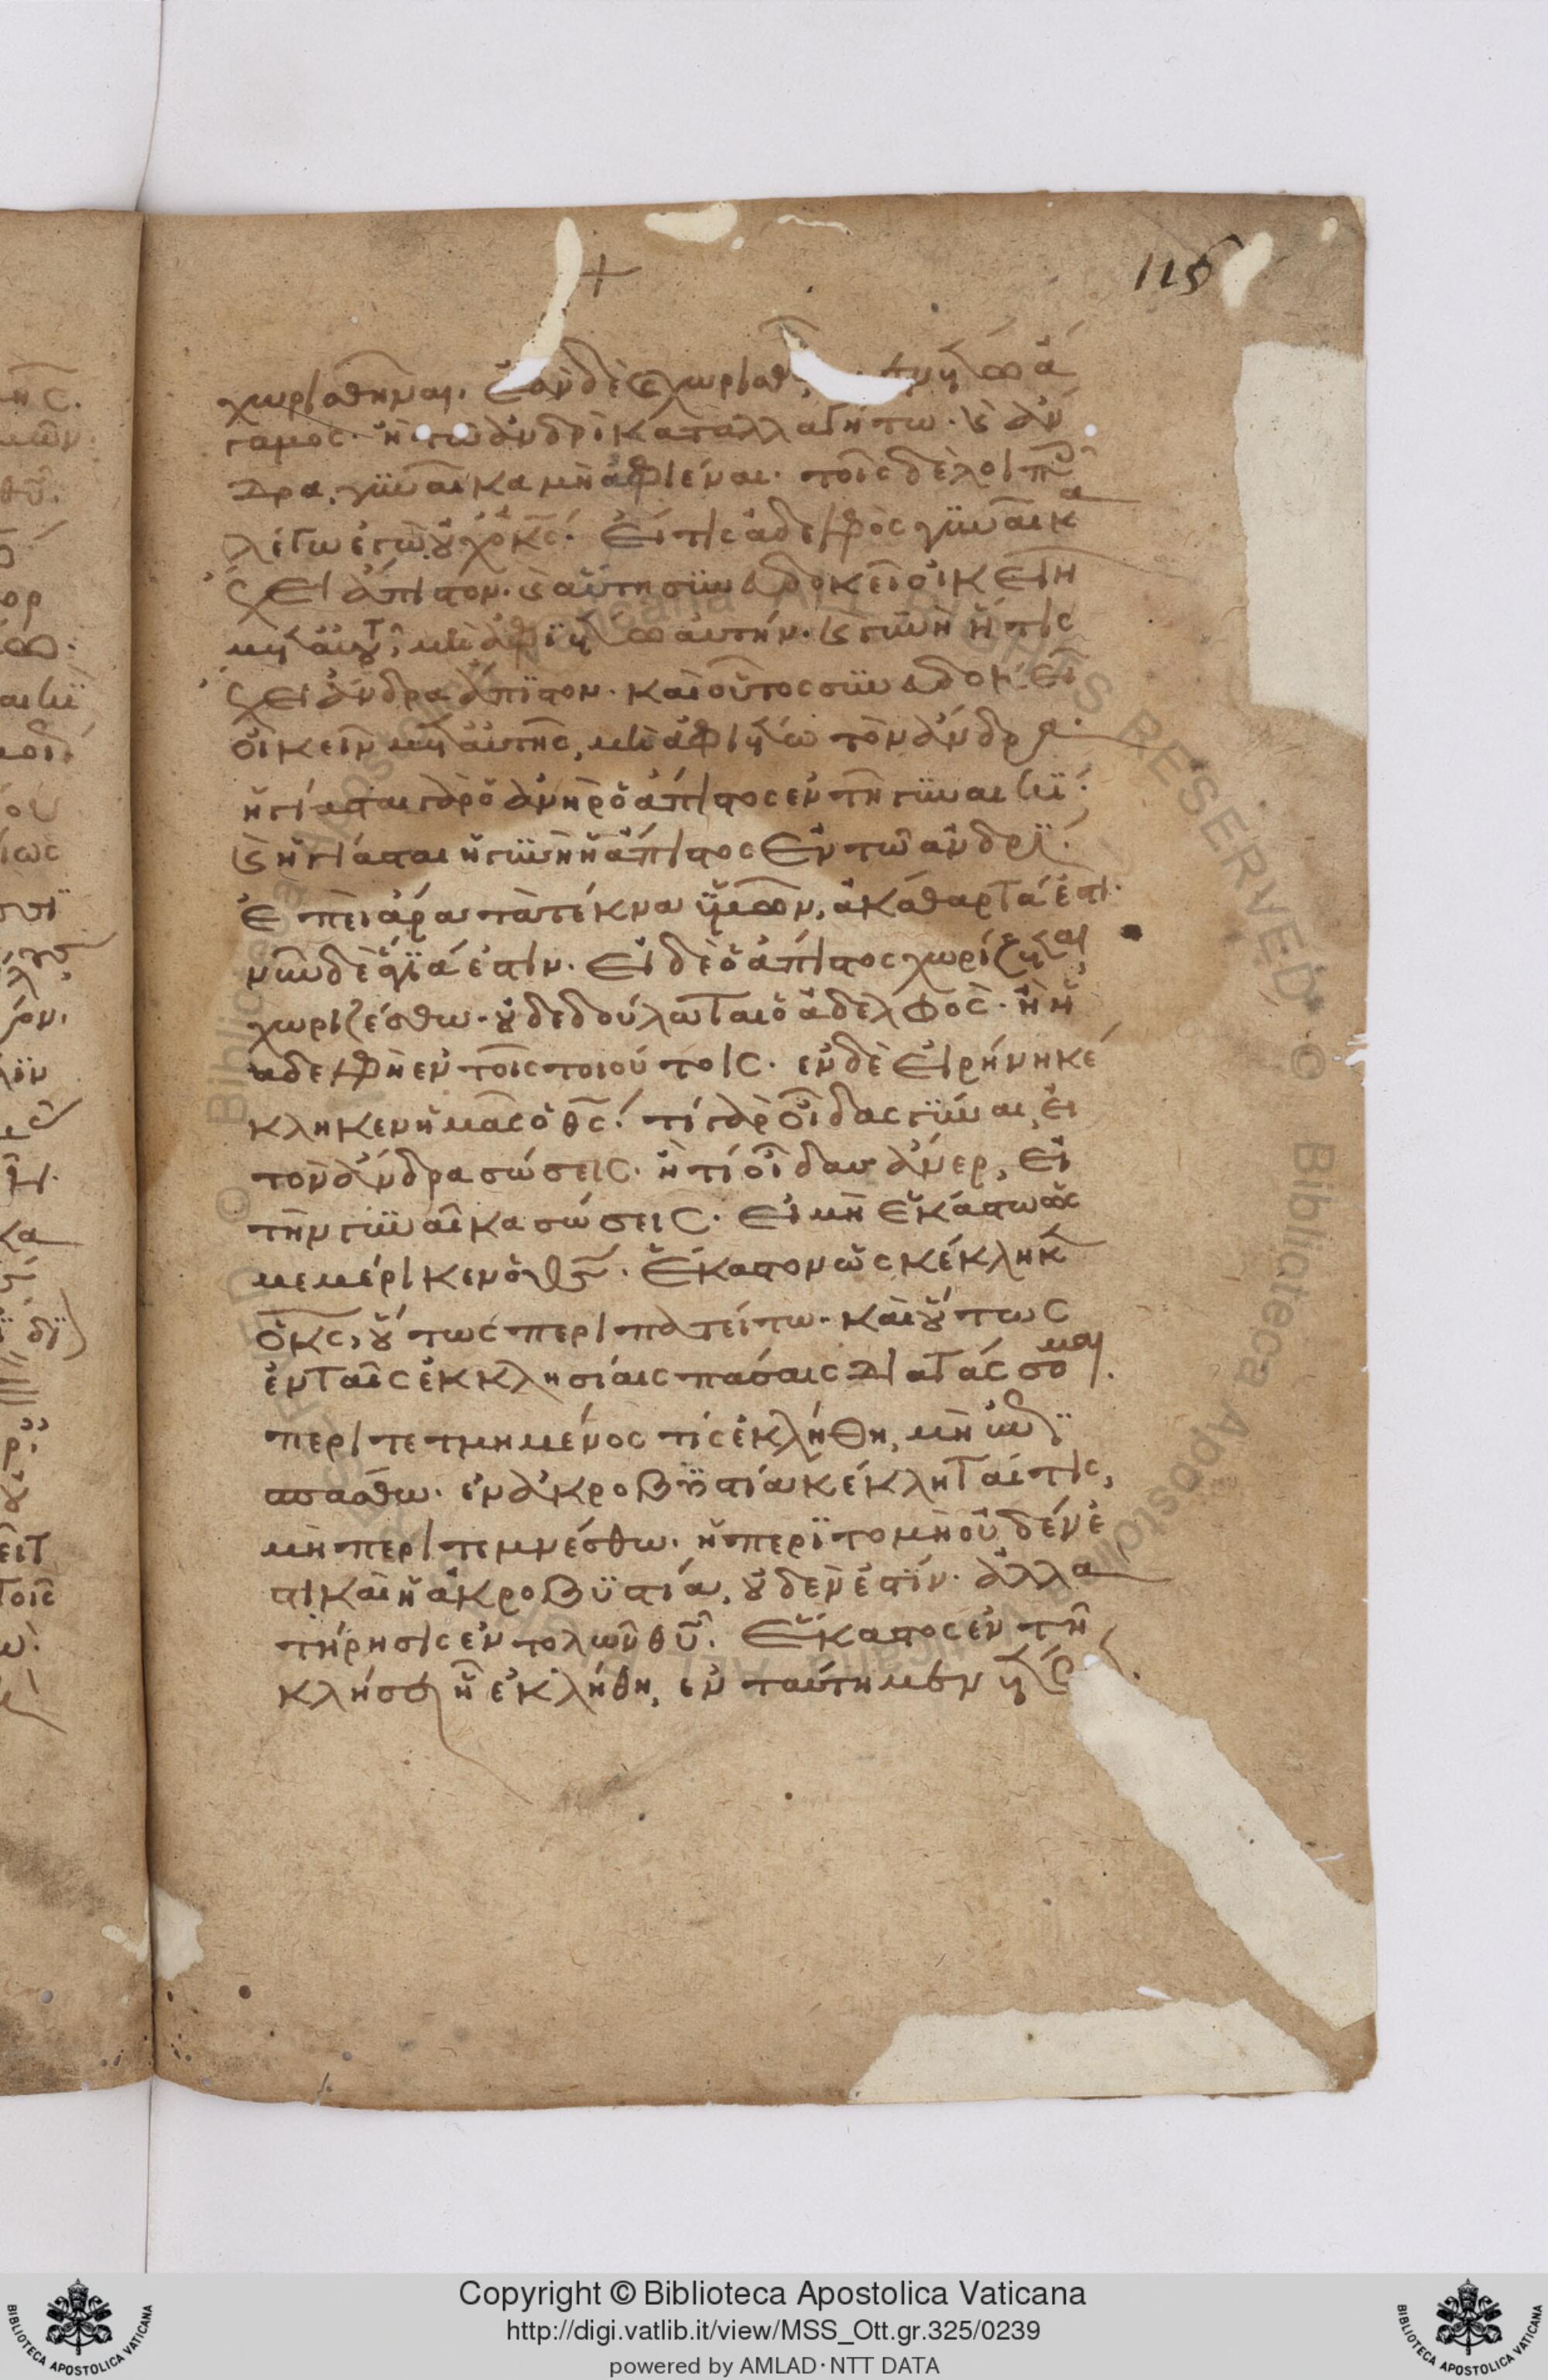 115
χωρισθῆναι. ἐὰν δὲ χωρισθ μενέτω ἄ
γαμος. ἢ τῶ ἀνδρὶ καταλλαγήτω. ϗ ἄν
δρα γυναῖκα μὴ ἀφιέναι. τοῖς δὲ λοιποῖς
λέγω ἐγὼ οὐχ ὁ κς. Εἴ τις ἀδελφὸς γυναῖκα
ἔχει ἄπιστον. ϗ αὕτη συνευδοκεῖ οἰκεῖν
μετ αὐτοῦ, μὴ ἀφιέτω αὐτήν. ϗ γυνὴ ἥτις
ἔχει ἄνδρα ἄπιστον. καὶ οὗτος συνευδοκεῖ
οἰκεῖν μετ αὐτῆς, μὴ ἀφιέτω τὸν ἄνδρα.
ἡγίασται γὰρ ὁ ἀνὴρ ὁ ἄπιστος ἐν τῇ γυναικί.
ϗ ἡγίασται ἡ γυνὴ ἡ ἄπιστος ἐν τῶ ἀνδρί.
Ἐπεὶ ἄρα τὰ τέκνα ὑμῶν, ἀκάθαρτά ἐστι.
νῦν δὲ ἅγιά ἐστιν. Εἰ δὲ ὁ ἄπιστος χωρίζεται,
χωριζέσθω. οὐ δεδούλωται ὁ ἀδελφὸς. ἢ ἡ
ἀδελφὴ ἐν τοῖς τοιούτοις. ἐν δὲ εἰρήνη κέ
κληκεν ἡμᾶς ὁ θς. τί γὰρ οἶδας γύναι, εἰ
τὸν ἄνδρα σώσεις. ἢ τί οἶδας ἄνερ, εἰ
τὴν γυναῖκα σώσεις. Εἰ μὴ ἑκάστω ὡς
μεμέρικεν ὁ θς. Ἕκαστον ὡς κέκληκεν
ὁ κς, οὕτως περιπατείτω. καὶ οὕτως
ἐν ταῖς ἐκκλησίαις πάσαις διατάσσομαι.
περιτετμημένος τίς ἐκλήθη, μὴ ἐπι
σπάσθω. ἐν ἀκροβυστία κέκληταί τις,
μὴ περιτεμνέσθω. ἡ περιτομὴ οὐδέν ἐ
στι καὶ ἡ ἀκροβυστία, οὐδέν ἐστιν. ἀλλὰ
τήρησις ἐντολῶν θυ. Ἕκαστος ἐν τῇ
κλήσει ἧ ἐκλήθη, ἐν ταύτη μεν
Copyright © Biblioteca Apostolica Vaticana
http://digi.vatlib.it/view/MSS_Ott.gr.325/0239
powered by AMLAD·NTT DATA